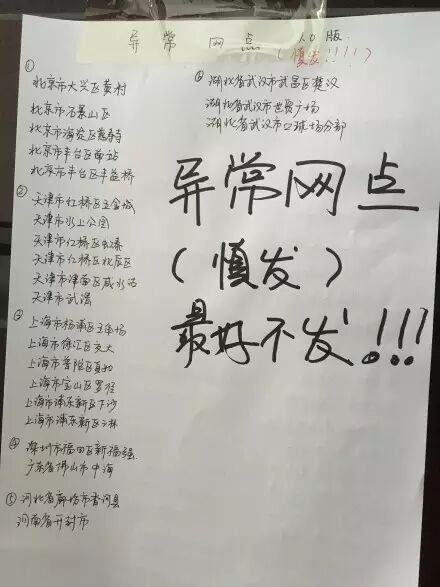 异常网点 1.0版
(慎发!!!!)
①
北京市大兴区黄村
北京市石景山区
北京市海淀区慈寿寺
北京市丰台区南站
北京市丰台区丰益桥
②
天津市红桥区五金城
天津市水上公园
天津市红桥区
天津市红桥区北辰区
天津市津南区咸水沽
天津市武清
③
上海市杨浦区五角场
上海市徐汇区交大
上海市普陀区真如
上海市宝山区罗泾
上海市浦东新区下沙
上海市浦东新区三林
④
深圳市福田区新福强
广东省佛山市中海
⑤ 河北省廊坊市香河县
河南省开封市
湖北省武汉市武昌区楚汉
湖北省武汉市世贸广场
湖北省武汉市口球场分部
异常网点
(慎发)
最好不发.!!!